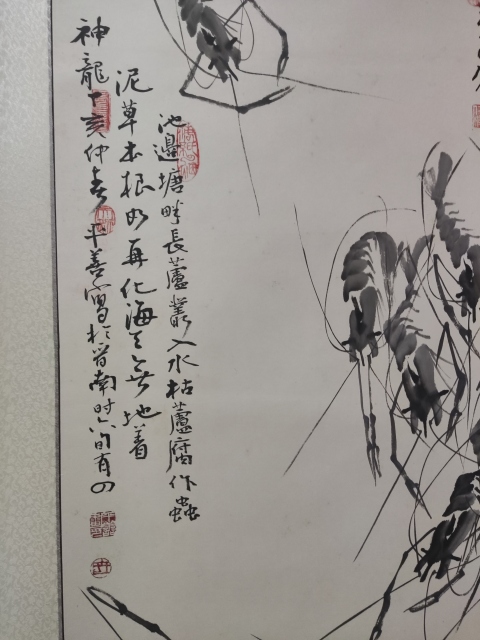 池邊塘畔長蘆叢入水枯蘆腐作蟲
泥草本根如再化海天無地着
神龍丁亥仲春平善寫於晉南时六旬有四